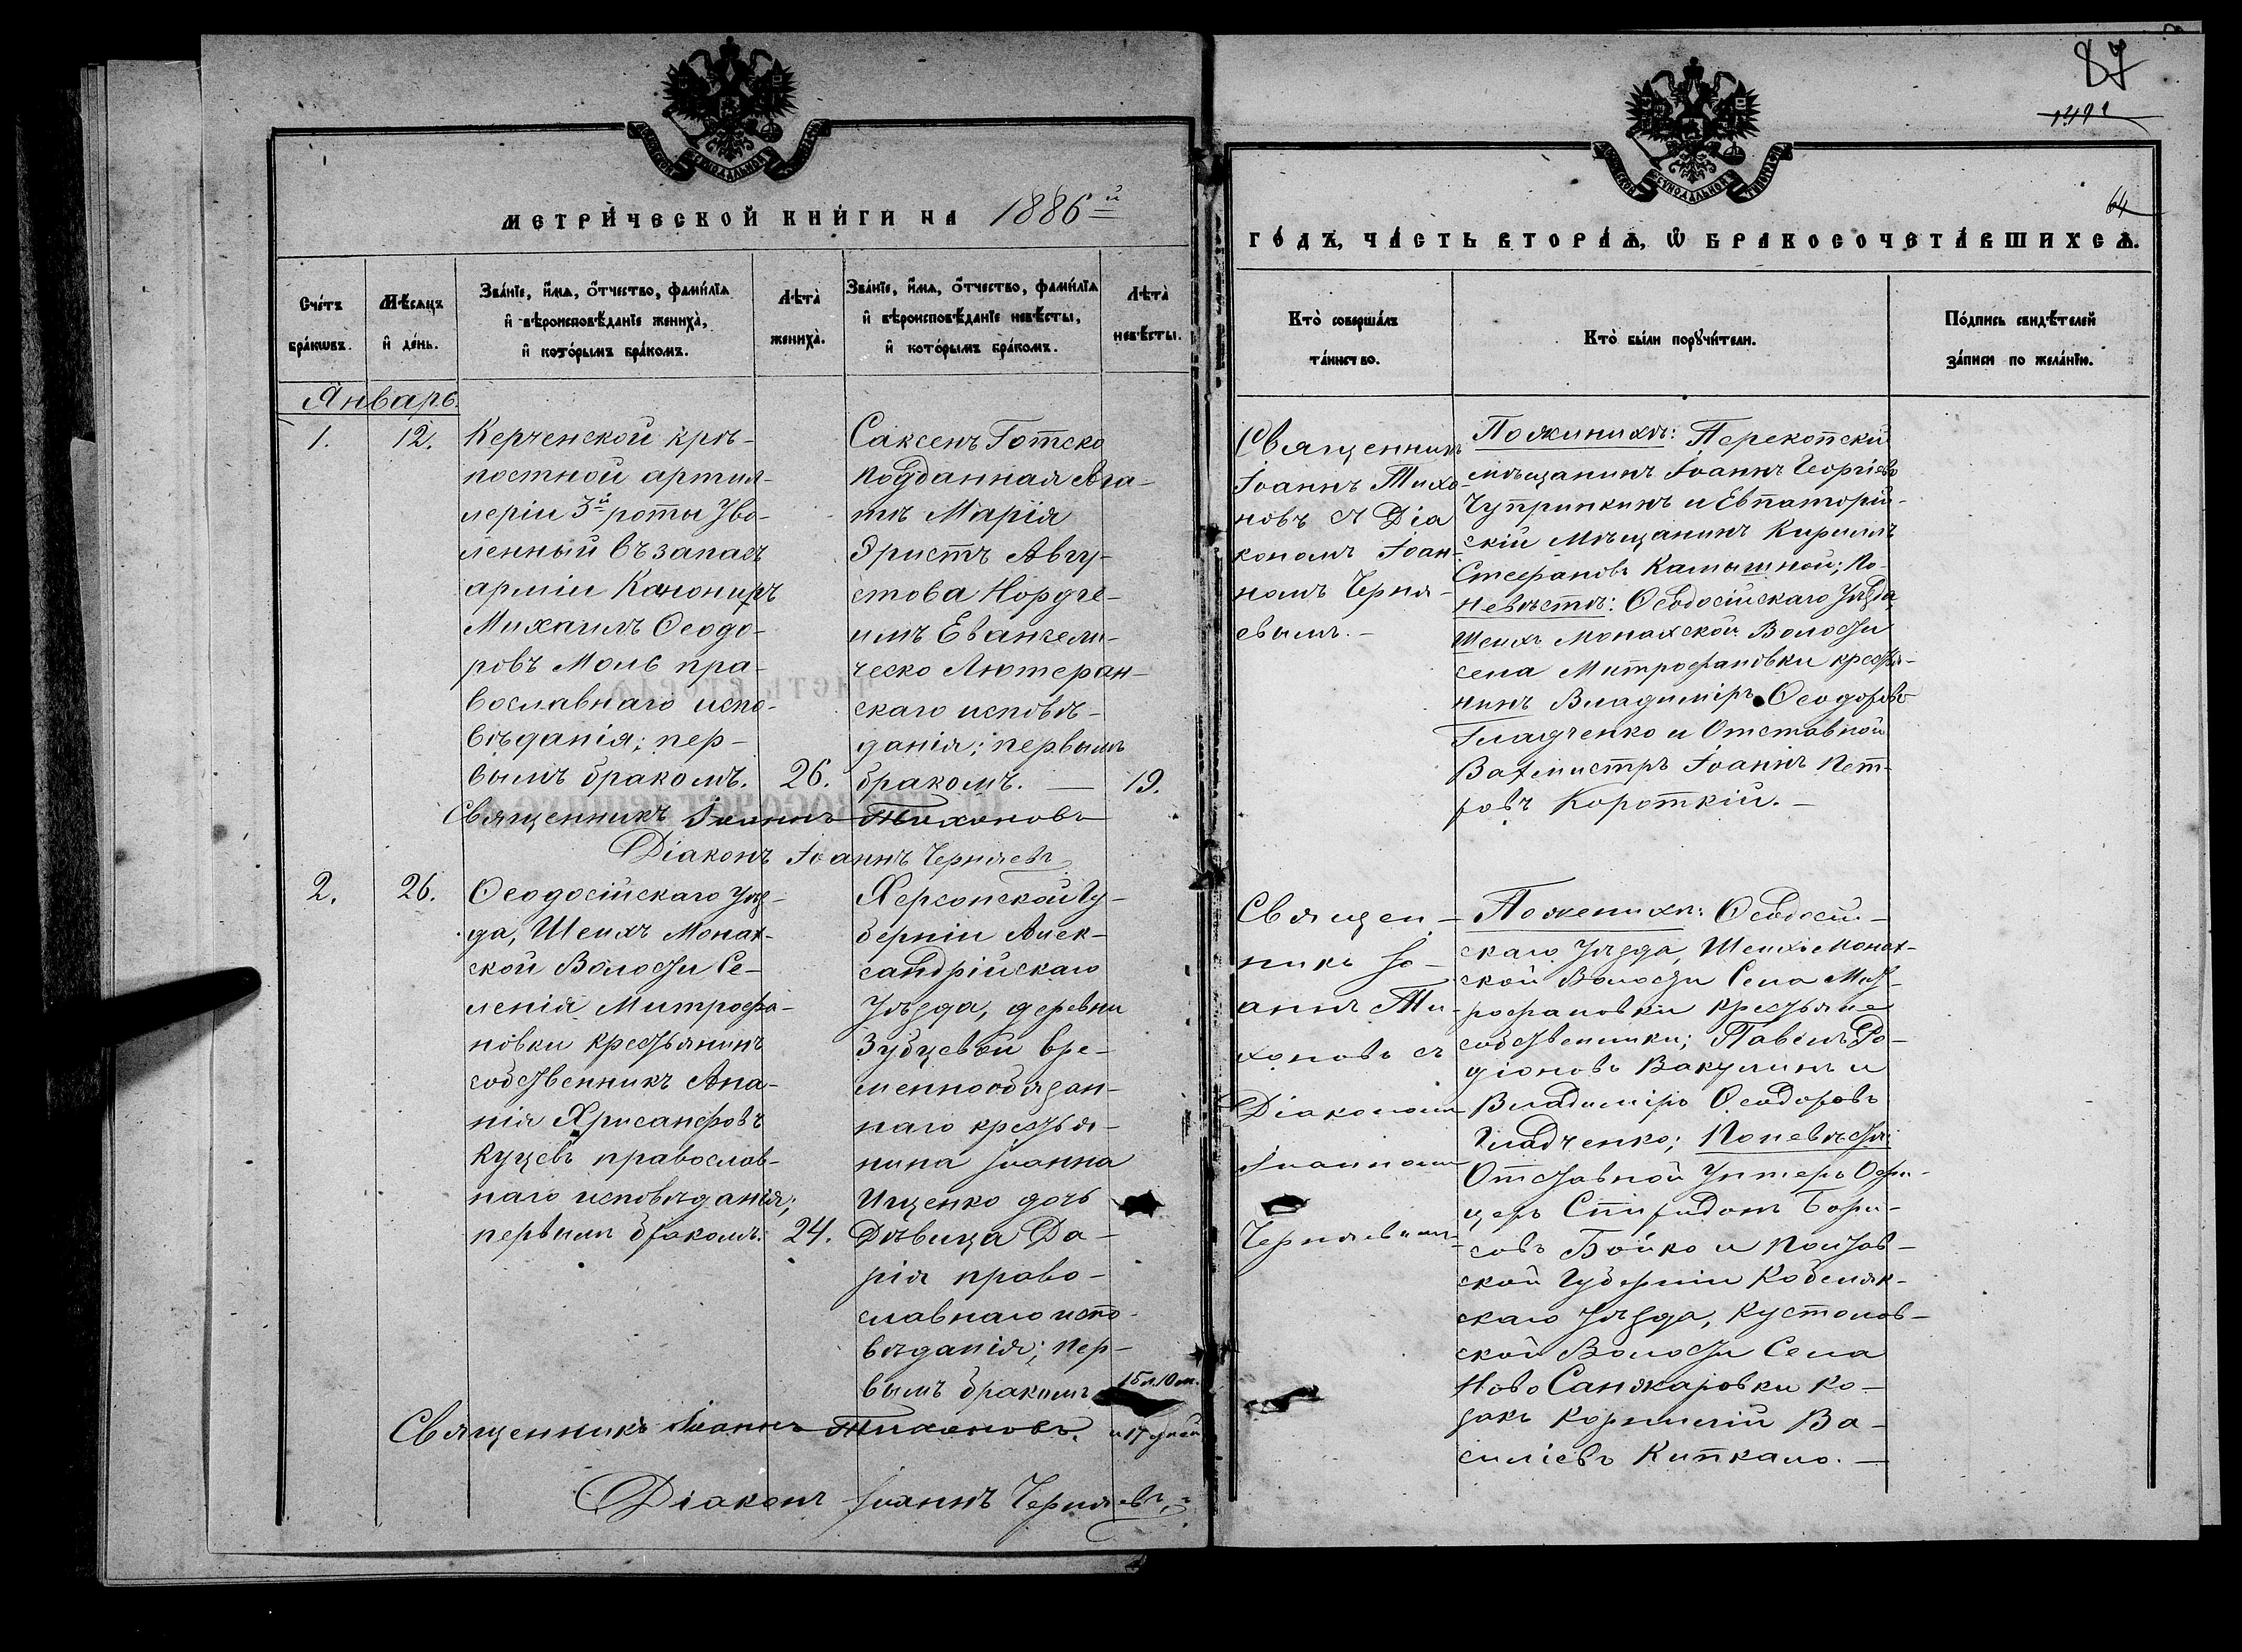 МЕТРИЧЕСКОЙ КНИГИ НА 1886й
Счетъ браковъ.
Мѣсяцъ и день.
Званіе, имя, отчество, фамилія
и вѣроисповѣданіе жениха,
и которымъ бракомъ.
Лѣта
жениха.
Званіе, имя, отчество, фамилія
и вѣроисповѣданіе невѣсты,
и которымъ бракомъ.
Лѣта
невѣсты.
Январь.
1.
12.
Керченской крѣ-
постной артил-
леріи 3й роты Уво-
ленный въ запасъ
арміи Канониръ
Михаилъ Ѳеодо-
ровъ Моль пра-
вославнаго испо-
вѣданія; пер-
вымъ бракомъ.
26.
Саксенъ Готско
подданная Ага-
тъ Марія
Эристъ Авгу-
стова Нордге-
имъ Евангели-
ческо Лютеран-
скаго исповѣ-
данія; первымъ
бракомъ. —
19.
Священникъ Іоаннъ Тихоновъ
Діаконъ Іоаннъ Черняевъ
2.
26.
Ѳеодосійскаго Уѣз-
да, Шеихъ Монах-
ской Волости Се-
ленія Митрофа-
новки крестьянинъ
собственникъ Ана-
нія Хрисанфовъ
Куцевъ православ-
наго исповѣданія;
первымъ бракомъ.
24.
Херсонской Гу-
берніи Алек-
сандрійскаго
Уѣзда, деревни
Зубцевой вре-
меннообязан-
наго крестья-
нина Іоанна
Ищенко дочь
Дѣвица Да-
рія право-
славнаго испо-
вѣданія; пер-
вымъ бракомъ
15 л. 10 м.
и 17 дней
Священникъ Іоаннъ Тихоновъ.
Діаконъ Іоаннъ Черняевъ
87
64
ГОДЪ, ЧАСТЬ ВТОРАЯ, Ѡ БРАКОСОЧЕТАВШИХСЯ.
Кто совершалъ
таинство.
Кто были поручители.
Подпись свидѣтелей
записи по желанію.
Священникъ
Іоаннъ Тихо-
новъ съ Діа
кономъ Іоан-
номъ Черня-
евымъ. —
По жинихѣ: Перекопскій
мѣщанинъ Іоаннъ Георгіевъ
Чупринкинъ и Евпаторій-
скій Мѣщанинъ Кириллъ
Стефановъ Камышной; По-
невѣстѣ: Ѳеодосійскаго Уѣзда
Шеихъ Монахской Волости
села Митрофановки крестья-
нинъ Владиміръ Ѳеодоровъ
Гладченко и Отставной
Вахмистръ Іоаннъ Пет-
ровъ Короткій. —
Священ-
никъ Іо-
аннъ Ти-
хоновъ съ
Діакономъ
Іоанномъ
Черняевымъ
По женихѣ: Ѳеодосій-
скаго Уѣзда, Шеихъ Монах-
ской Волости Села Мит-
рофановки крестьяне
собственники; Павелъ Ро-
діоновъ Вакулинъ и
Владиміръ Ѳеодоровъ
Гладченко; По невѣстѣ:
Отставной Унтеръ Офи-
церъ Спиридонъ Бори-
совъ Бойко и Полтав-
ской Губерніи Кобеляк-
скаго Уѣзда, Кустолов-
ской Волости Села
Ново Санжаровки Ко-
закъ Корнилій Ва-
силіевъ Кипкало. —